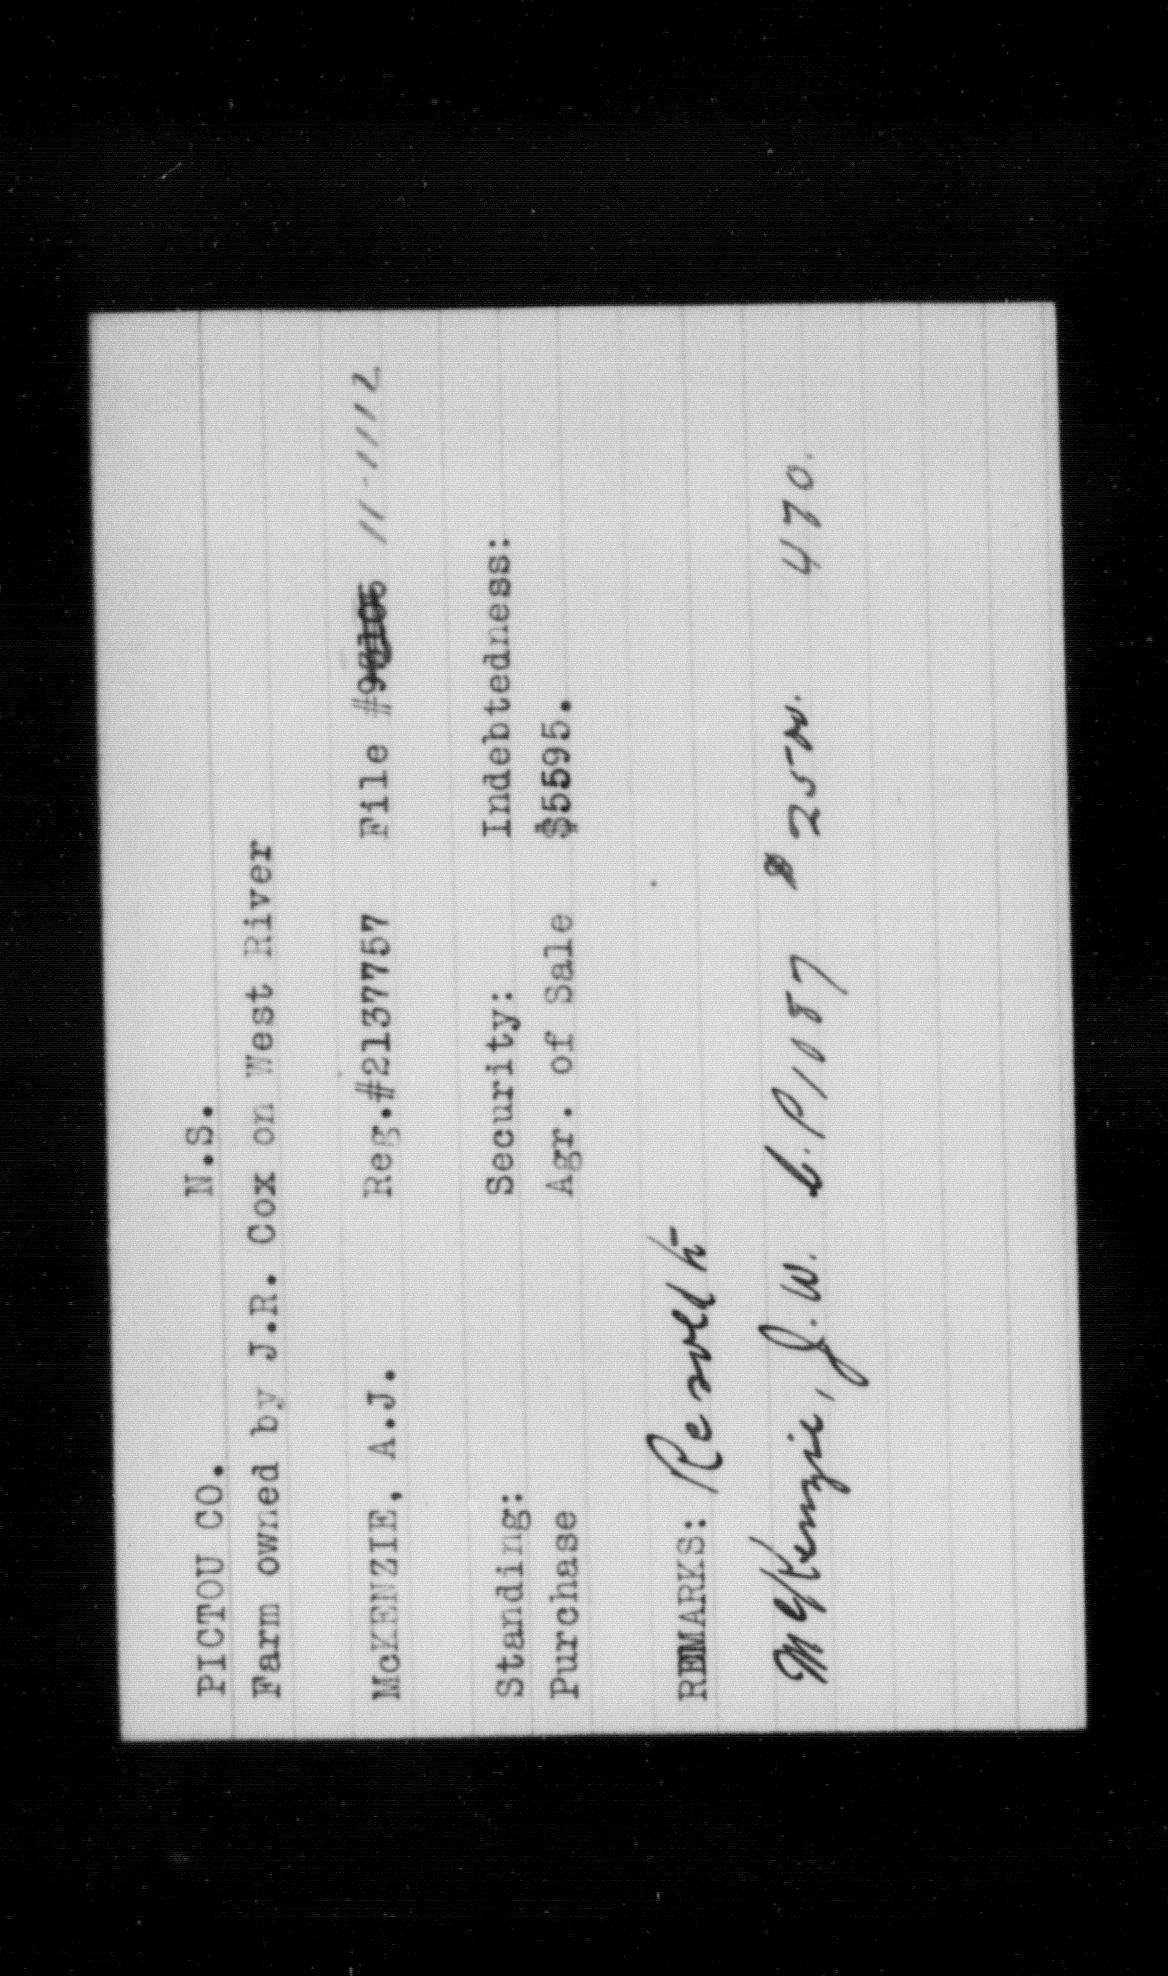 PICTOU CO. N.S.
Farm owned by J.R. Cox on West River
McKENZIE, A.J. Reg.#2137757 File # 11-1112
Standing: Security: Indebtedness:
Purchase Agr. of Sale $5595.
REMARKS: Resold to
McKenzie, J.W. C.P. 1087 $ 25 470.